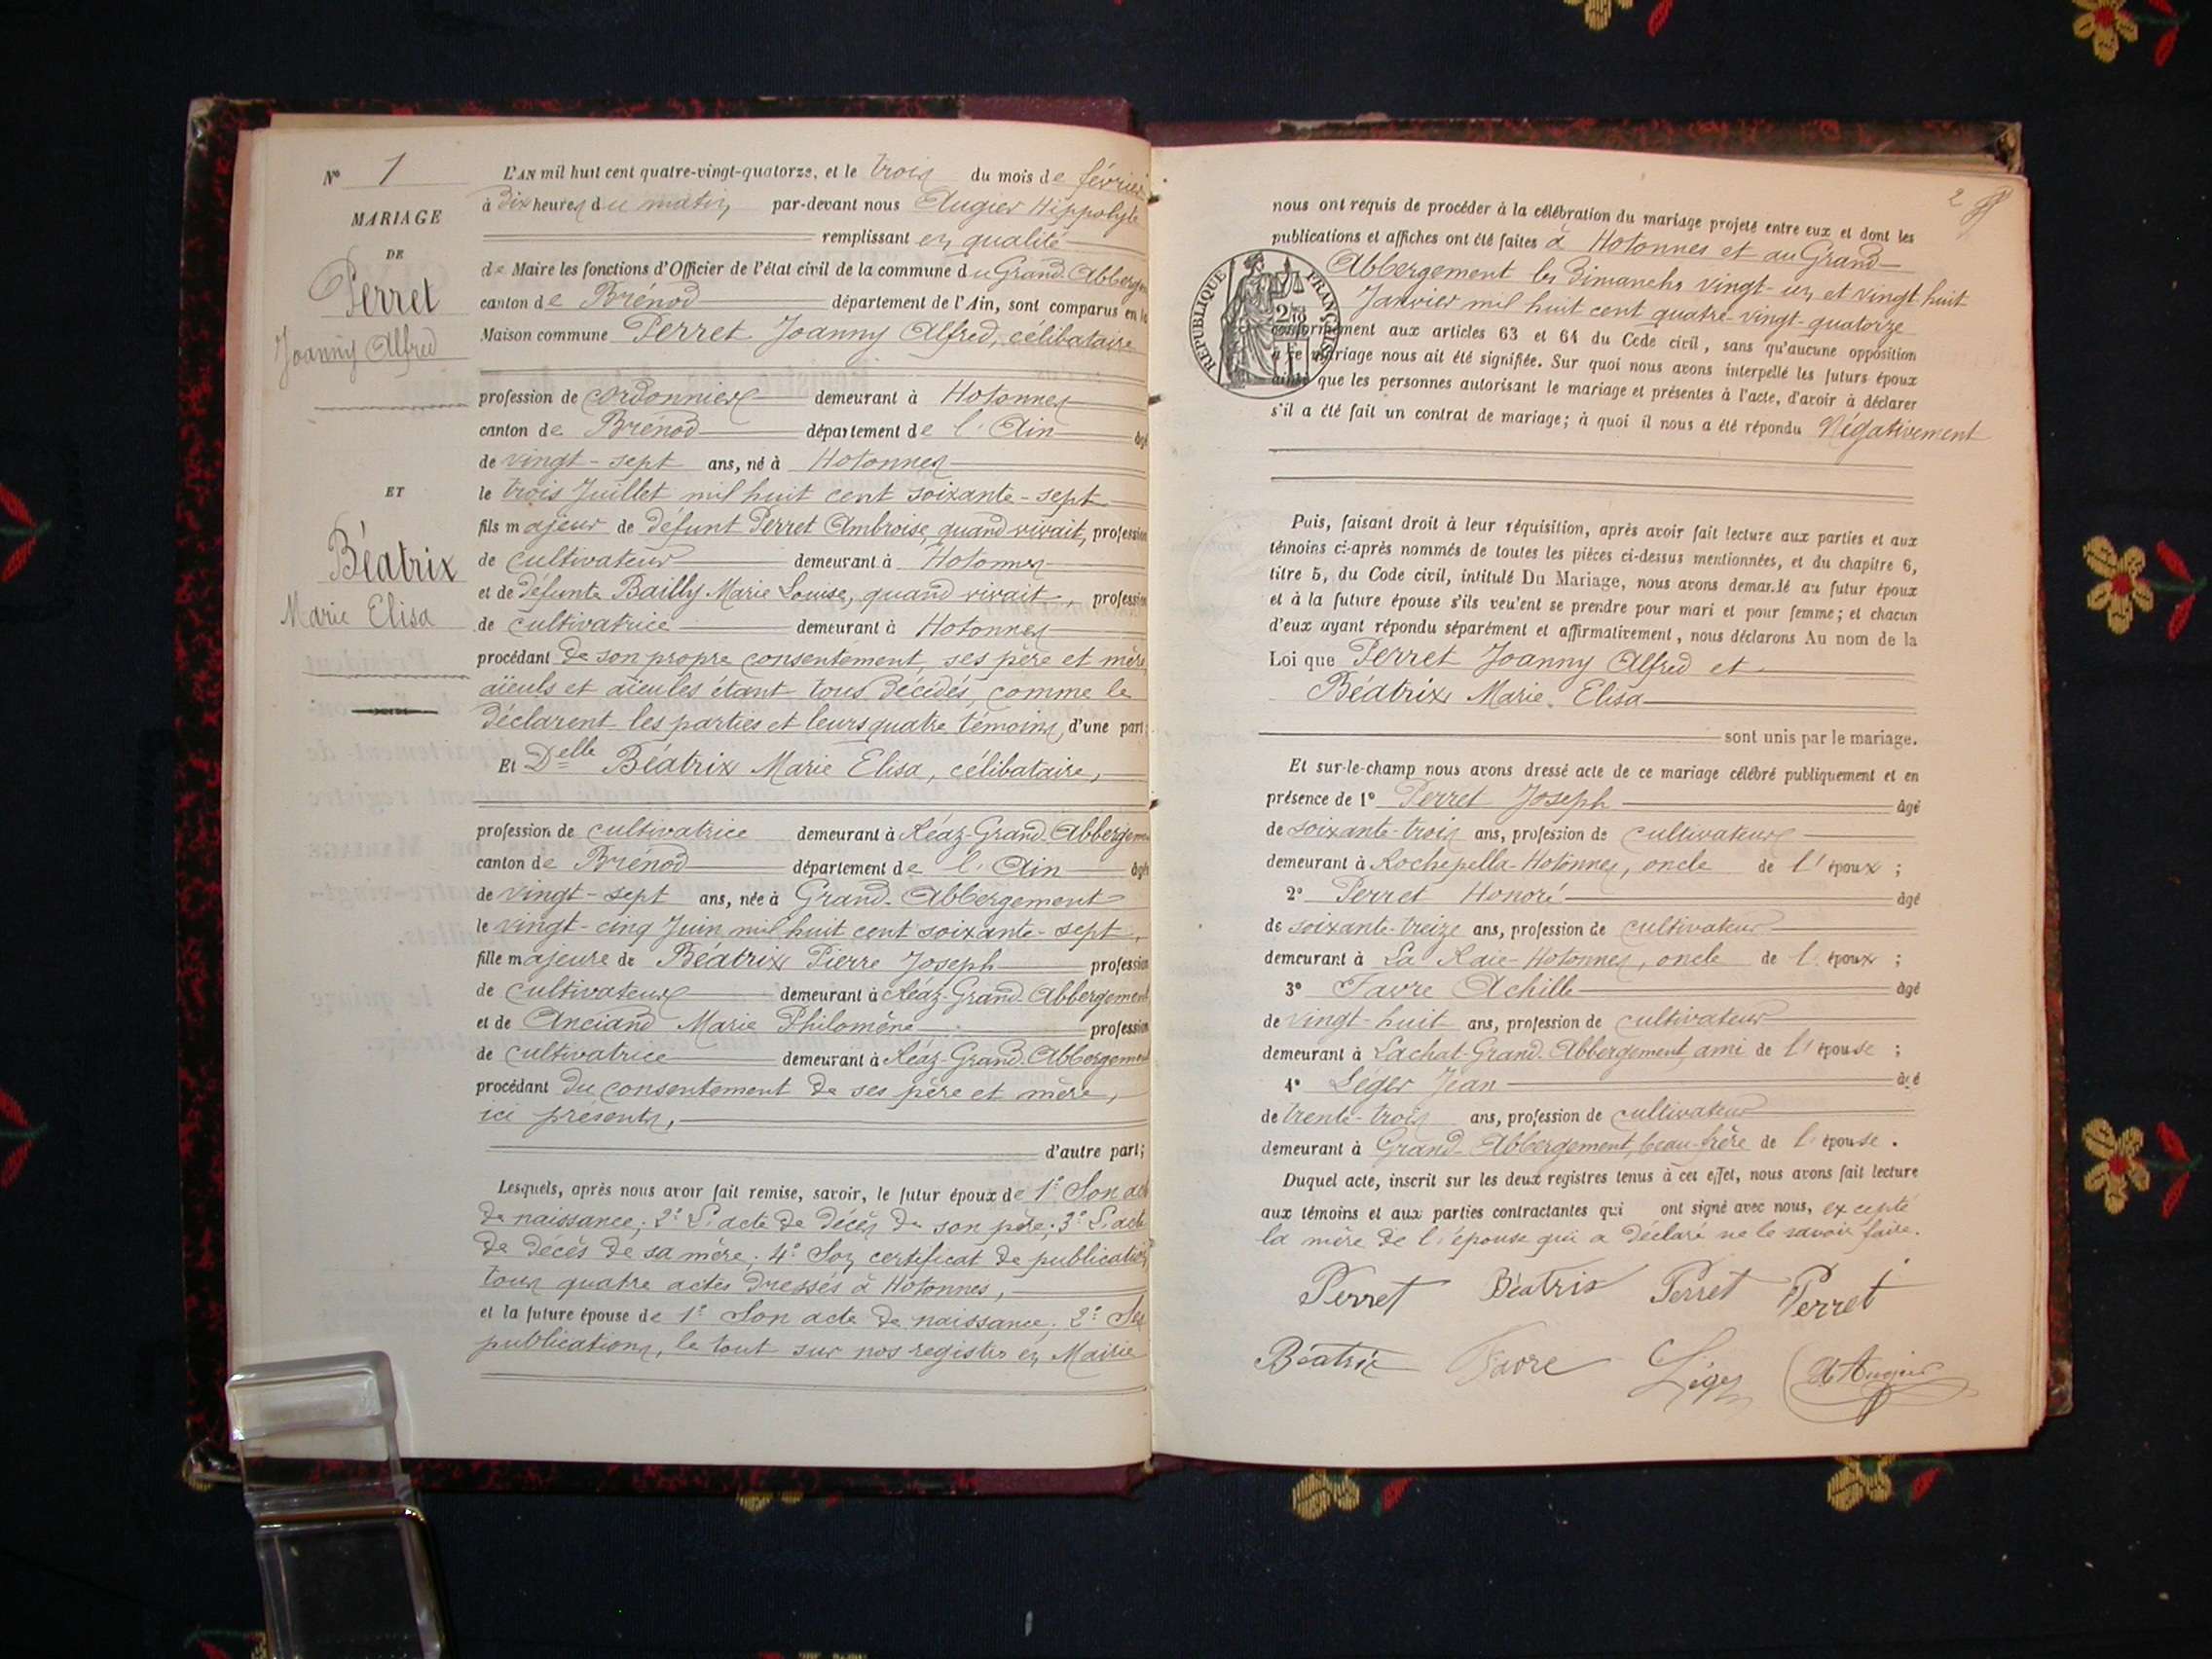 N° 1
MARIAGE
DE
Perret
Joanny Alfred
ET
Béatrix
Marie Elisa
L'AN mil huit cent quatre-vingt-quatorze, et le trois du mois de février
à dix heures du matin, par-devant nous Augier Hippolyte
remplissant en qualité
de Maire les fonctions d'Officier de l'état civil de la commune du Grand-Abbergem
canton de Brénod département de l'Ain, sont comparus en la
Maison commune Perret Joanny Alfred, célibataire
profession de cordonnier demeurant à Hotonnes
canton de Brénod département de l'Ain âgé
de vingt-sept ans, né à Hotonnes
le trois Juillet mil huit cent soixante-sept
fils majeur de défunt Perret Ambroise, quand vivait, profession
de cultivateur demeurant à Hotonnes
et de défunte Bailly Marie Louise, quand vivait, profession
de cultivatrice demeurant à Hotonnes
procédant de son propre consentement, ses père et mère,
aïeuls et aïeules étant tous décédés, comme le
déclarent les parties et leurs quatre témoins, d'une part;
Et Delle Béatrix Marie Elisa, célibataire,
profession de cultivatrice demeurant à Réaz-Grand-Abbergeme
canton de Brénod département de l'Ain âgée
de vingt-sept ans, née à Grand-Abbergement
le vingt-cinq Juin mil huit cent soixante-sept,
fille majeure de Béatrix Pierre Joseph profession
de cultivateur demeurant à Réaz-Grand-Abbergement
et de Anciand Marie Philomène profession
de cultivatrice demeurant à Réaz-Grand-Abbergement
procédant du consentement de ses père et mère,
ici présents,
d'autre part;
Lesquels, après nous avoir fait remise, savoir, le futur époux de 1° Son acte
de naissance; 2° L'acte de décès de son père; 3° L'acte
de décès de sa mère; 4° Son certificat de publication,
tous quatre actes dressés à Hotonnes,
et la future épouse de 1° Son acte de naissance; 2° Ses
publications, le tout sur nos registres en Mairie
2
nous ont requis de procéder à la célébration du mariage projeté entre eux et dont les
publications et affiches ont été faites à Hotonnes et au Grand-
Abbergement les dimanches vingt-un et vingt-huit
Janvier mil huit cent quatre-vingt-quatorze
REPUBLIQUE FRANÇAISE
conformément aux articles 63 et 64 du Code civil, sans qu'aucune opposition
à ce mariage nous ait été signifiée. Sur quoi nous avons interpellé les futurs époux
ainsi que les personnes autorisant le mariage et présentes à l'acte, d'avoir à déclarer
s'il a été fait un contrat de mariage; à quoi il nous a été répondu Négativement
Puis, faisant droit à leur réquisition, après avoir fait lecture aux parties et aux
témoins ci-après nommés de toutes les pièces ci-dessus mentionnées, et du chapitre 6,
titre 5, du Code civil, intitulé Du Mariage, nous avons demandé au futur époux
et à la future épouse s'ils veulent se prendre pour mari et pour femme; et chacun
d'eux ayant répondu séparément et affirmativement, nous déclarons Au nom de la
Loi que Perret Joanny Alfred et
Béatrix Marie Elisa
sont unis par le mariage.
Et sur-le-champ nous avons dressé acte de ce mariage célébré publiquement et en
présence de 1° Perret Joseph âgé
de soixante-trois ans, profession de cultivateur
demeurant à Rochepella-Hotonnes, oncle de l'époux;
2° Perret Honoré âgé
de soixante-treize ans, profession de cultivateur
demeurant à La Raie-Hotonnes, oncle de l'époux;
3° Favre Achille âgé
de vingt-huit ans, profession de cultivateur
demeurant à Lachat-Grand-Abbergement, ami de l'épouse;
4° Léger Jean âgé
de trente-trois ans, profession de cultivateur
demeurant à Grand-Abbergement, beau-frère de l'épouse.
Duquel acte, inscrit sur les deux registres tenus à cet effet, nous avons fait lecture
aux témoins et aux parties contractantes qui ont signé avec nous, excepté
la mère de l'épouse qui a déclaré ne le savoir faire.
Perret Béatrix Perret Perret
Béatrix Favre Léger H Augier